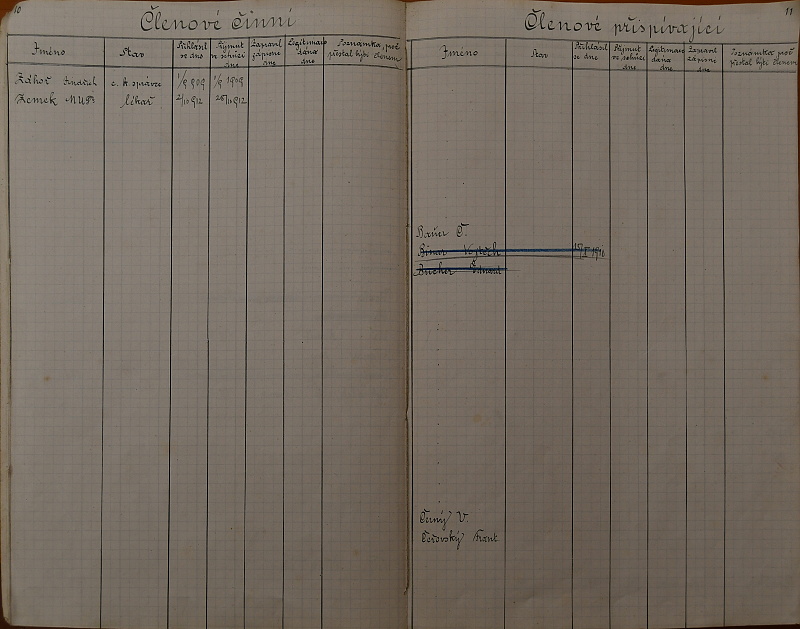 10
Členové činní
Jméno Stav Přihlásil se dne Přijmut ve schůzi dne Zapravil zápisné dne Legitimace dána dne Poznámka, proč přestal býti členem
Zdhoř Jindřich c. k. správce 1/9 909 1/9 1909
Zemek MUDr lékař 2/11 912 28/11 912
11
Členové přispívající
Jméno Stav Přihlásil se dne Přijmut ve schůzi dne Legitimace dána dne Zapravil zápisné dne Poznámka proč přestal býti členem
Bauer Č.
Vojtěch 1910
Bucher Edmund
Černý V.
Čeřovský Frant